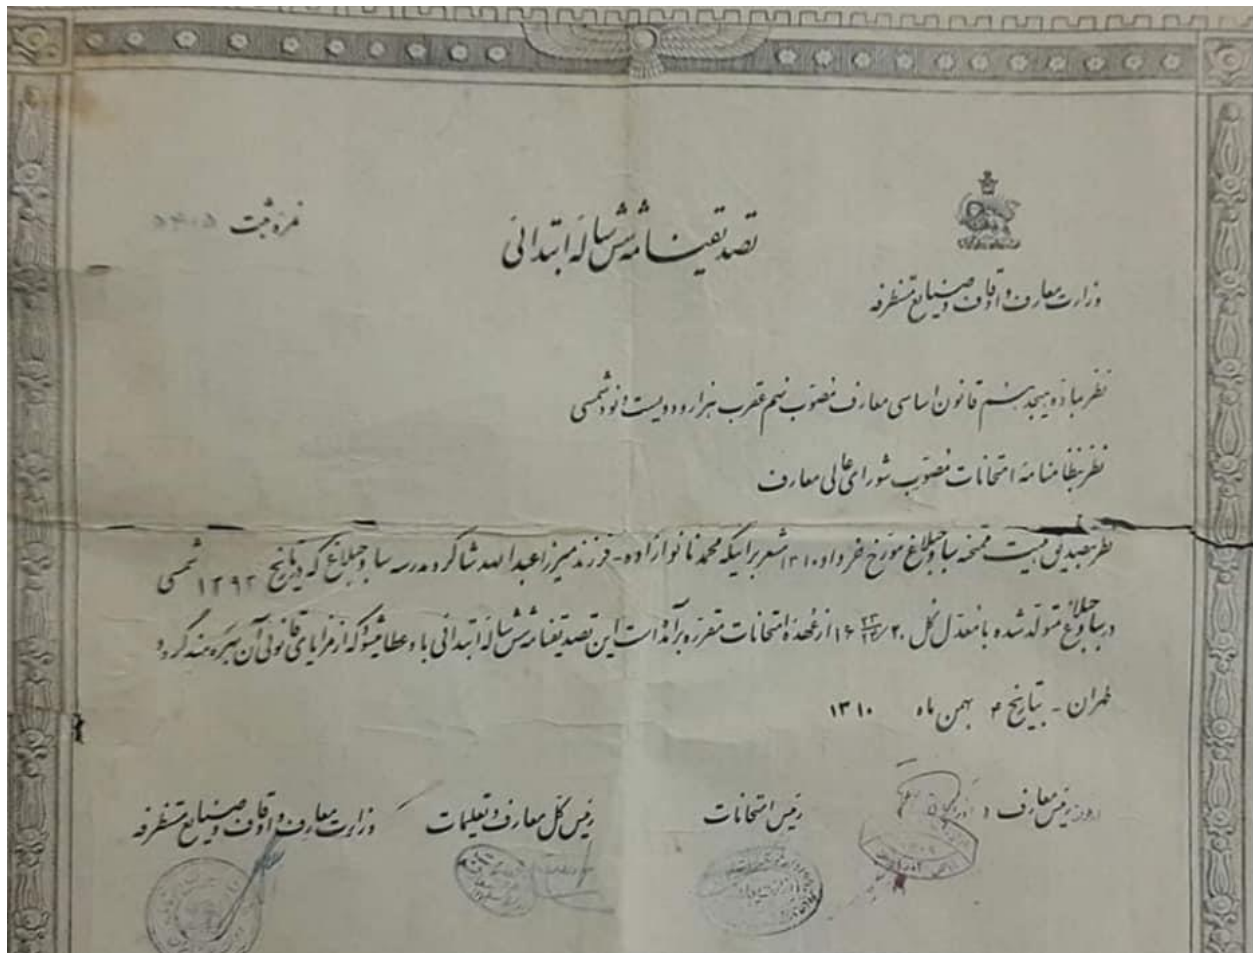 تصدیقنامه شش ساله ابتدائی
نمره ثبت
وزارت معارف و اوقاف و صنایع مستظرفه
نظر بماده هیجدهم قانون اساسی معارف مصوب نهم عقرب هزار و دویست و نود شمسی
نظر بنظامنامه امتحانات مصوب شورای عالی معارف
نظر بتصدیق هیئت ممتحنه ساوجبلاغ مورخ خرداد ۱۳۱۰ مشعر براینکه محمد نانوازاده - فرزند میرزا عبدالله شاگرد مدرسه ساوجبلاغ که در تاریخ ۱۲۹۲ شمسی
در ساوجبلاغ متولد شده با معدل کل ۱۶ از عهده امتحانات مقرره برآمده است این تصدیقنامه شش ساله ابتدائی باو عطا میشود که از مزایای قانونی آن بهره مند گردد
طهران - بتاریخ ۴ بهمن ماه ۱۳۱۰
رئیس معارف
رئیس امتحانات
رئیس کل معارف و تعلیمات
وزارت معارف و اوقاف و صنایع مستظرفه